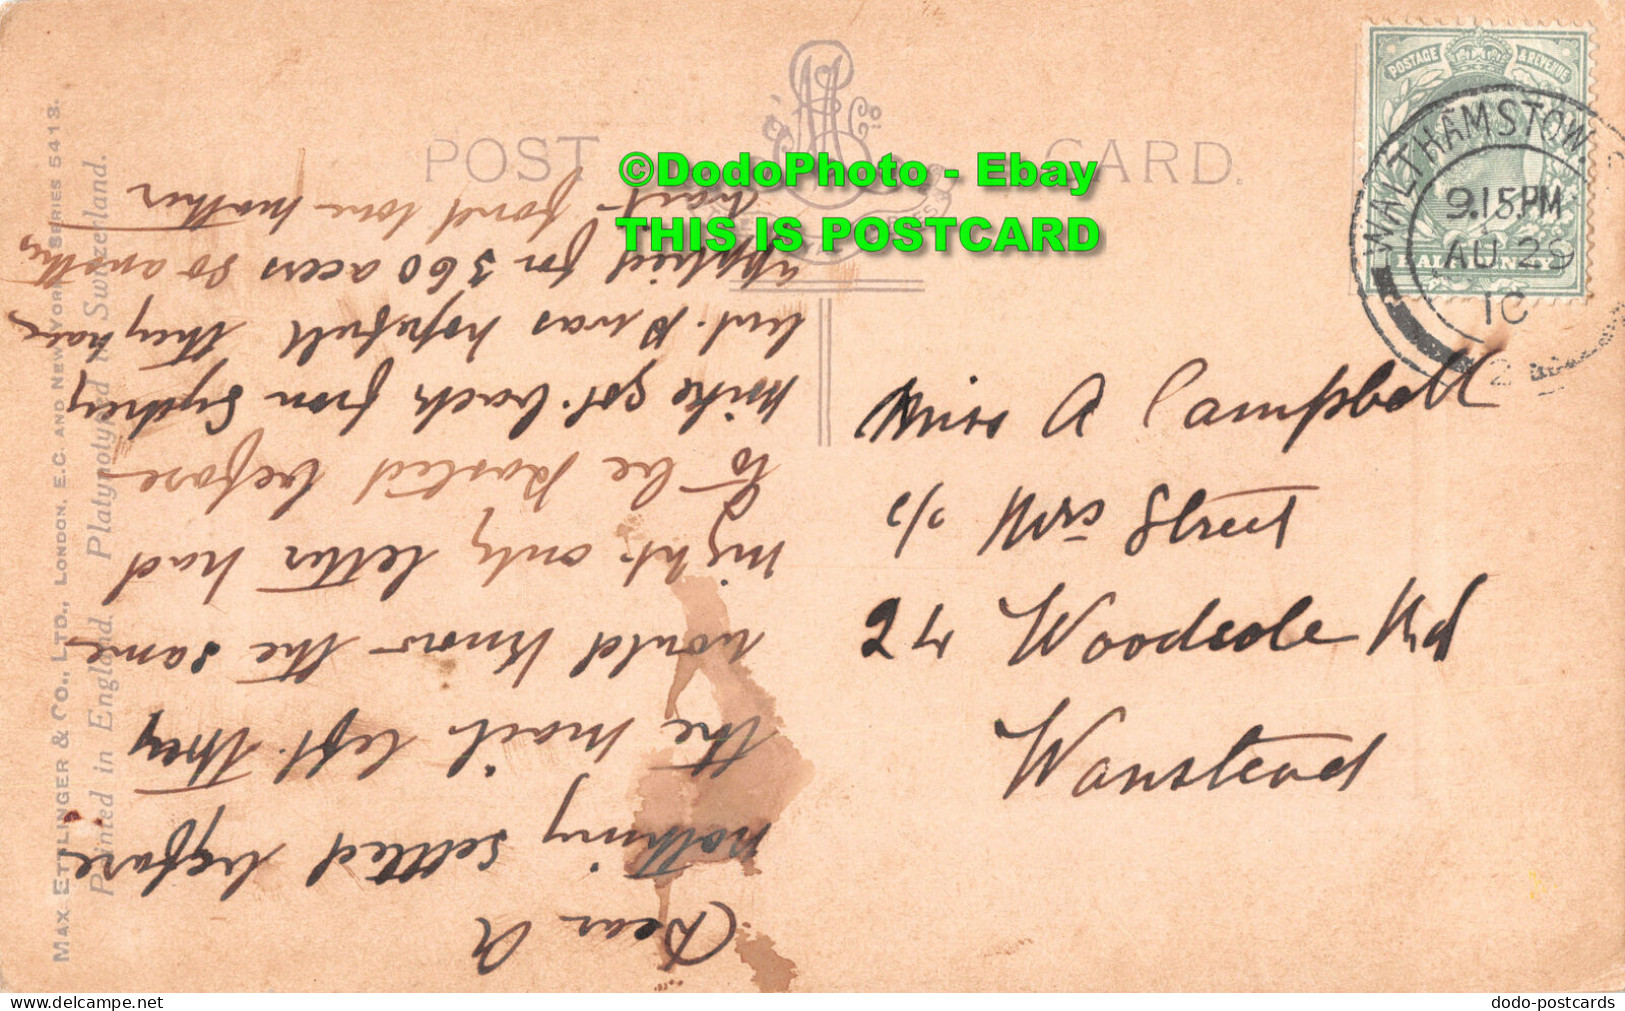 POST CARD.
©DodoPhoto - Ebay
THIS IS POSTCARD
POSTAGE & REVENUE
HALFPENNY
WALTHAMSTOW
9.15PM
AU 29
10
Miss A Campbell
c/o Mrs Street
24 Woodcole Rd
Wanstead
Dear A
nothing settled before
the mail left. They
would know the same
night. only letter had
to be posted before
Mike got back from Sydney
but. P was hopefull they have
applied for 360 acers so another
wait- fond love mother
MAX ETTLINGER & CO., LTD., LONDON, E.C. AND NEW YORK SERIES 5413.
Printed in England. Platynotyped in Switzerland.
delcampe.net
dodo-postcards